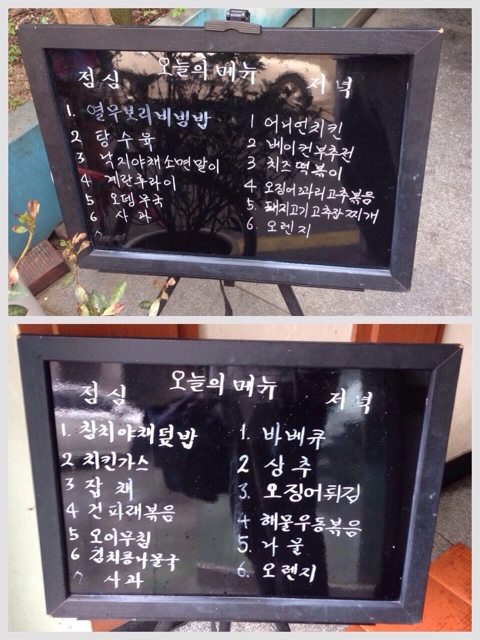 오늘의 메뉴
점심
1. 열무보리비빔밥
2 탕수육
3 낙지야채소면말이
4 계란후라이
5 오뎅무국
6 사과
저녁
1 어니언치킨
2 베이컨부추전
3 치즈떡볶이
4 오징어꽈리고추볶음
5. 돼지고기고추장찌개
6. 오렌지
오늘의 메뉴
점심
1. 참치야채덮밥
2 치킨가스
3 잡채
4 건파래볶음
5 오이무침
6 김치콩나물국
7 사과
저녁
1. 바베큐
2 상추
3. 오징어튀김
4 해물우동볶음
5. 나물
6. 오렌지